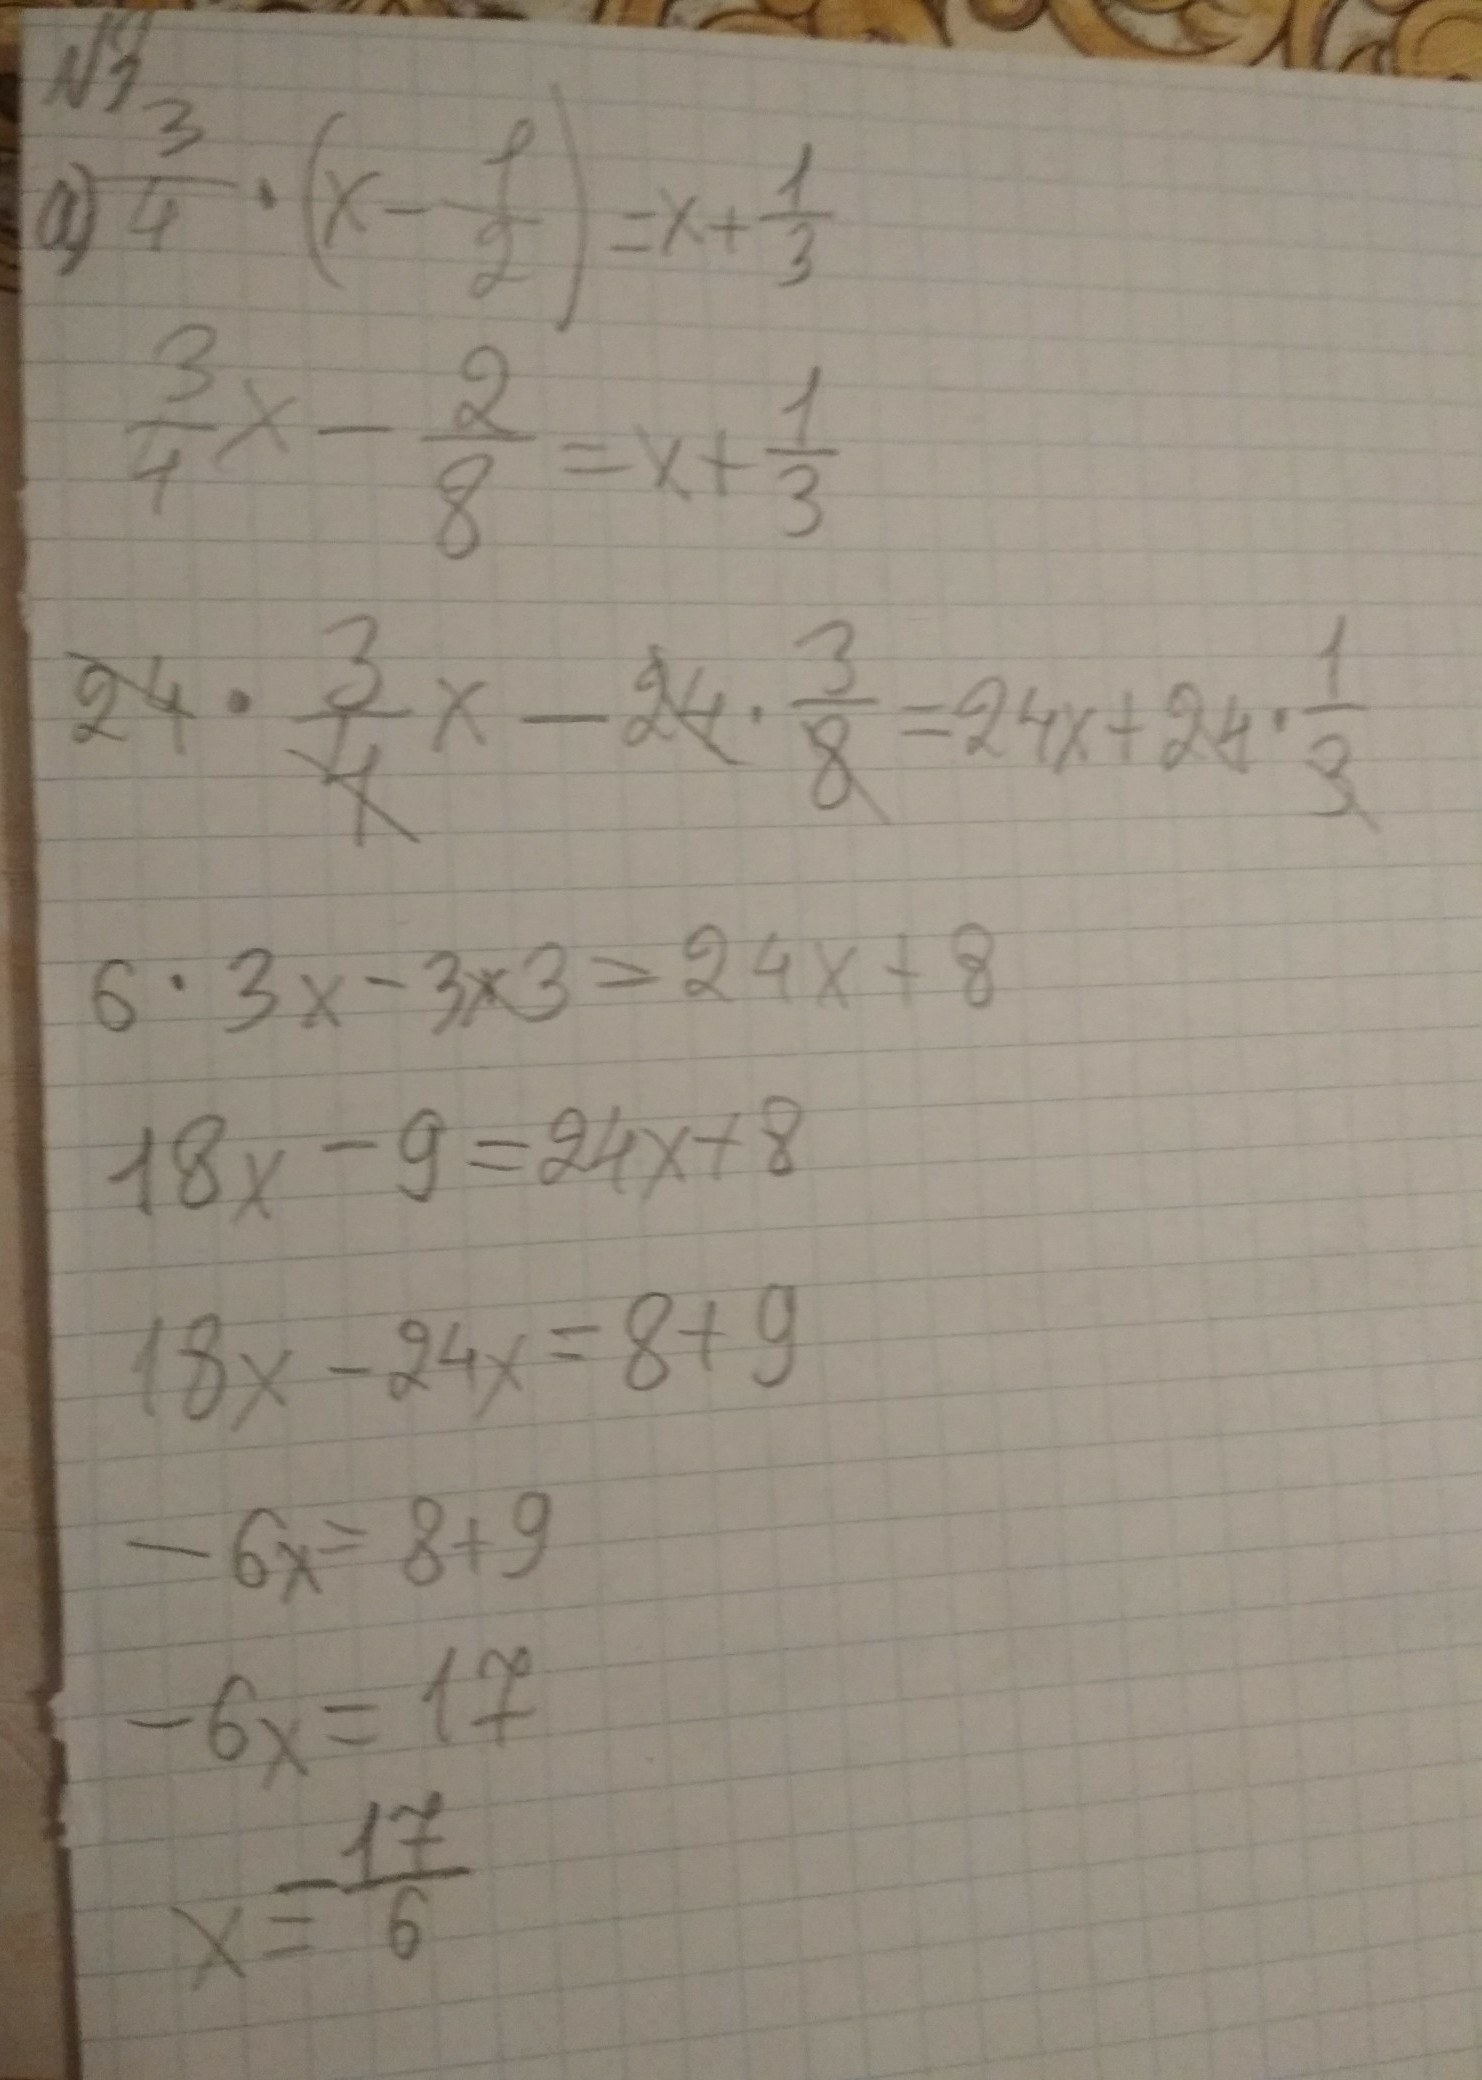 №1
а) 3/4 · (x - 1/2) = x + 1/3
3/4 x - 2/8 = x + 1/3
24 · 3/4 x - 24 · 3/8 = 24x + 24 · 1/3
6 · 3x - 3x3 = 24x + 8
18x - 9 = 24x + 8
18x - 24x = 8 + 9
- 6x = 8 + 9
- 6x = 17
x = - 17/6